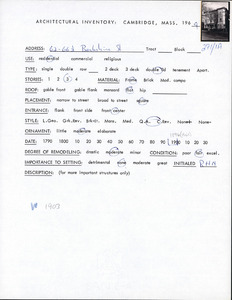 ARCHITECTURAL INVENTORY: CAMBRIDGE, MASS, 196
ADDRESS: Tract Block
USE: residential commercial religious
TYPE: single double row 2 deck 3 deck double 3d tenement Apart.
STORIES: 1 2 3 4 MATERIAL: Frame Brick Mod. compo
ROOF: gable front gable flank mansard flat hip
PLACEMENT: narrow to street broad to street square
ENTRANCE: flank front side front center
STYLE: Mans. Mod.
ORNAMENT: little moderate elaborate
DATE: 1790 1820 30 40 50 60 70 80 1890 10 20 30
DEGREE OF REMODELING: drastic moderate minor CONDITION: poor fair excel.
IMPORTANCE TO SETTING: detrimental none moderate great INITIALED RHN
DESCRIPTION: (for more important structures only)
1903